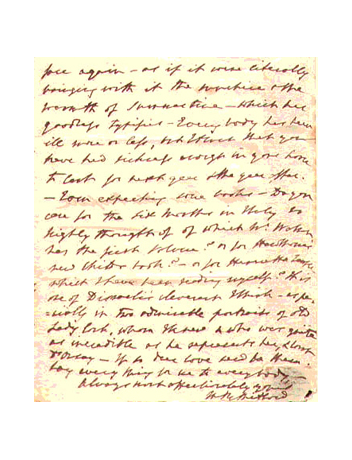 face again — as if it were literally
bringing with it the sunshine & the
warmth of Summertime — which her
goodness typifies — Every body has been
ill more or less, but I trust that you
have had sickness enough in your house
to last for next year & the year after.
— I am expecting some books — Do you
care for the Six Months in Italy so
highly thought of of which Mr.
has the first volume? or for Hawthorne's
new Child's book? — or for Henrietta Temple
which I have been reading myself? This
one of Disraeli's cleverest I think — espe
-cially in two admirable portraits of old
Lady Cork, whom I knew & who was quite
as incredible as he represents her, & Count
D'Orsay — If so dear love send be them
Say every thing for me to every body
Always most affectionately yours
M R Mitford